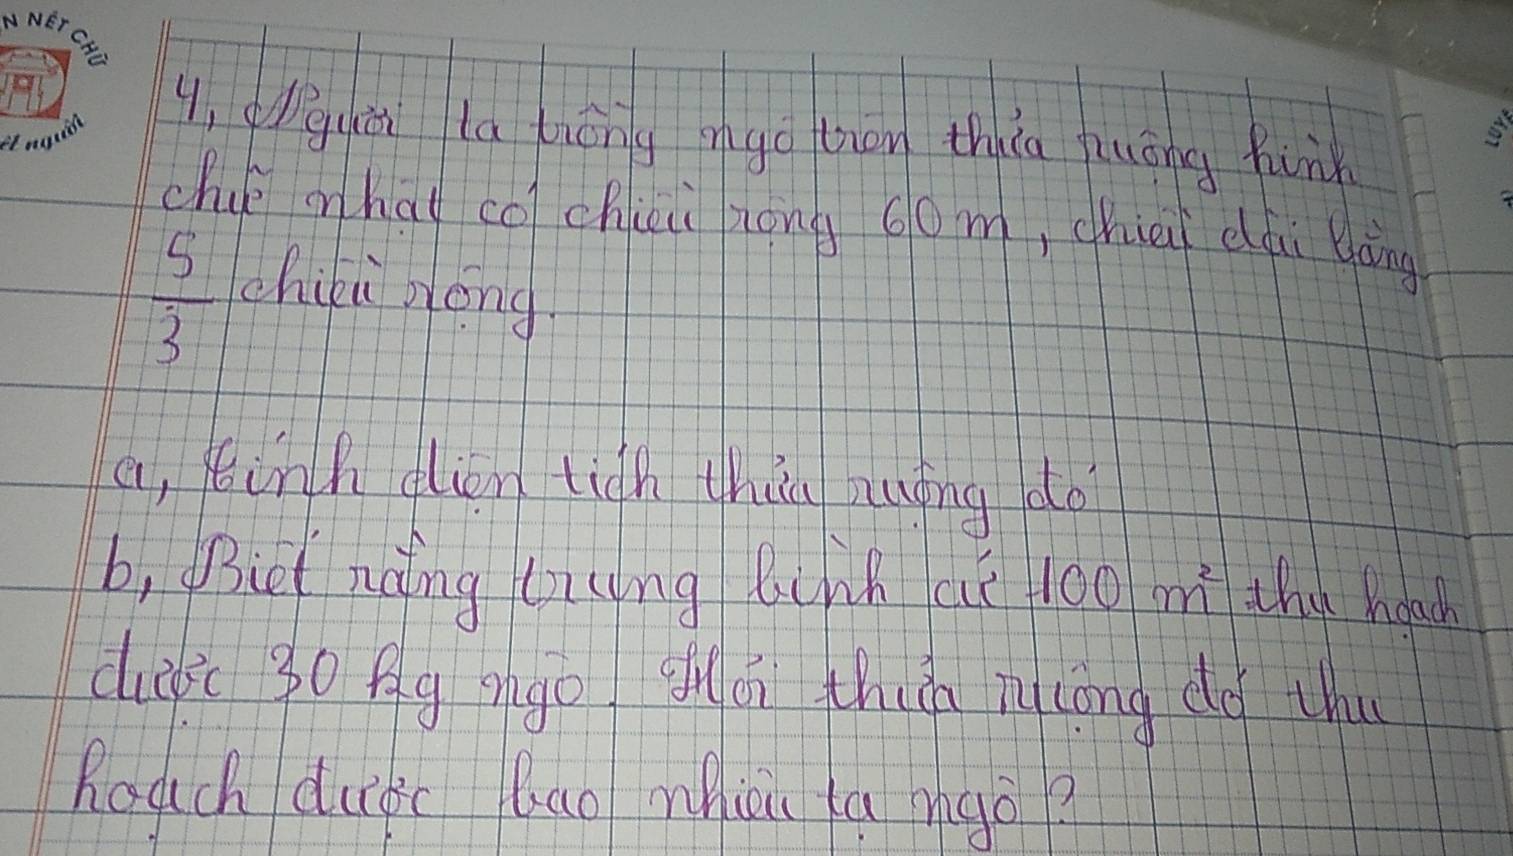 N NÉT CHỮ
ết người
LUYỆ
4, Người ta trồng ngô trên thửa ruộng hình
chữ nhật có chiều rộng 60 m, chiều dài bằng
5/3 chiều rộng.
a, tính diện tích thửa ruộng đó
b, Biết rằng trung bình cứ 100 m² thu hoạch
được 30 kg ngô. Hỏi thửa ruộng đó thu
hoạch được bao nhiêu tạ ngô?